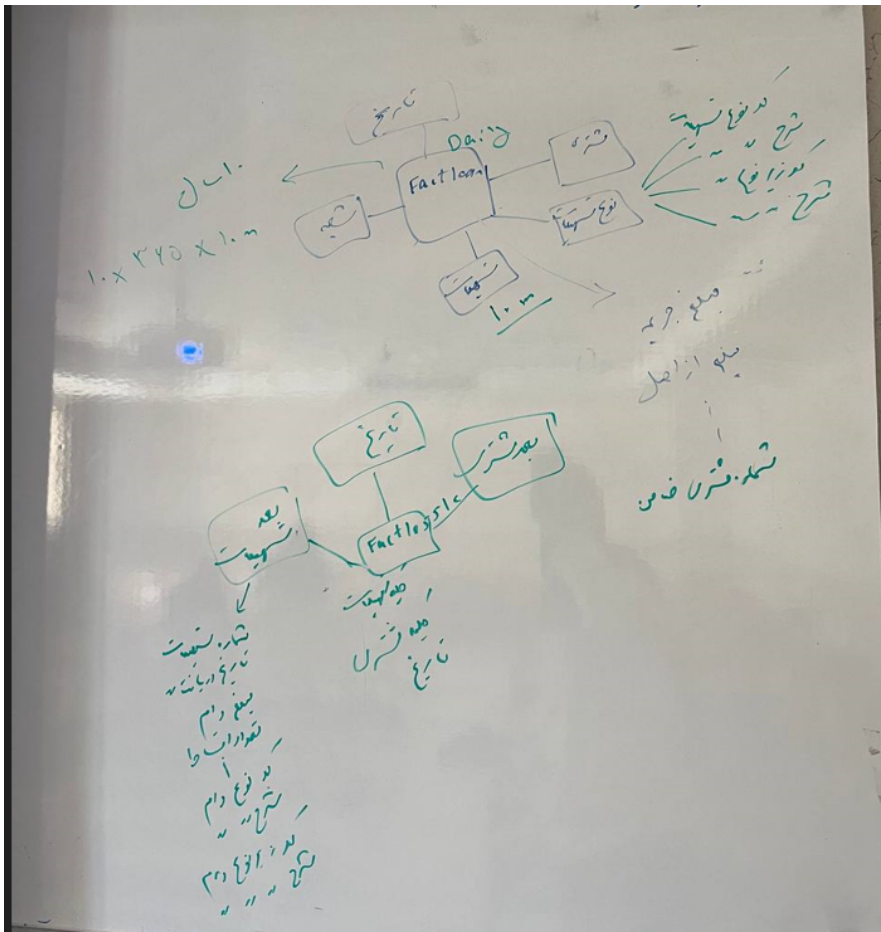 تاریخ
Daily
Fact loan
مشتری
شعبه
نوع تسهیلات
تسهیلات
۱۰ m
۱۰ سال
۱۰ x ۳۶۵ x ۱۰ m
کد نوع تسهیلات
شرح " "
کد زیر نوع "
شرح " "
مبلغ جریمه
مبلغ از اصل
شماره مشتری ضامن
تاریخ
بعد مشتری
بعد تسهیلات
تسهیلات
مشتری
تاریخ
شماره تسهیلات
تاریخ دریافت "
مبلغ وام
تعداد اقساط
کد نوع وام
شرح " "
کد زیر نوع وام
شرح " " "